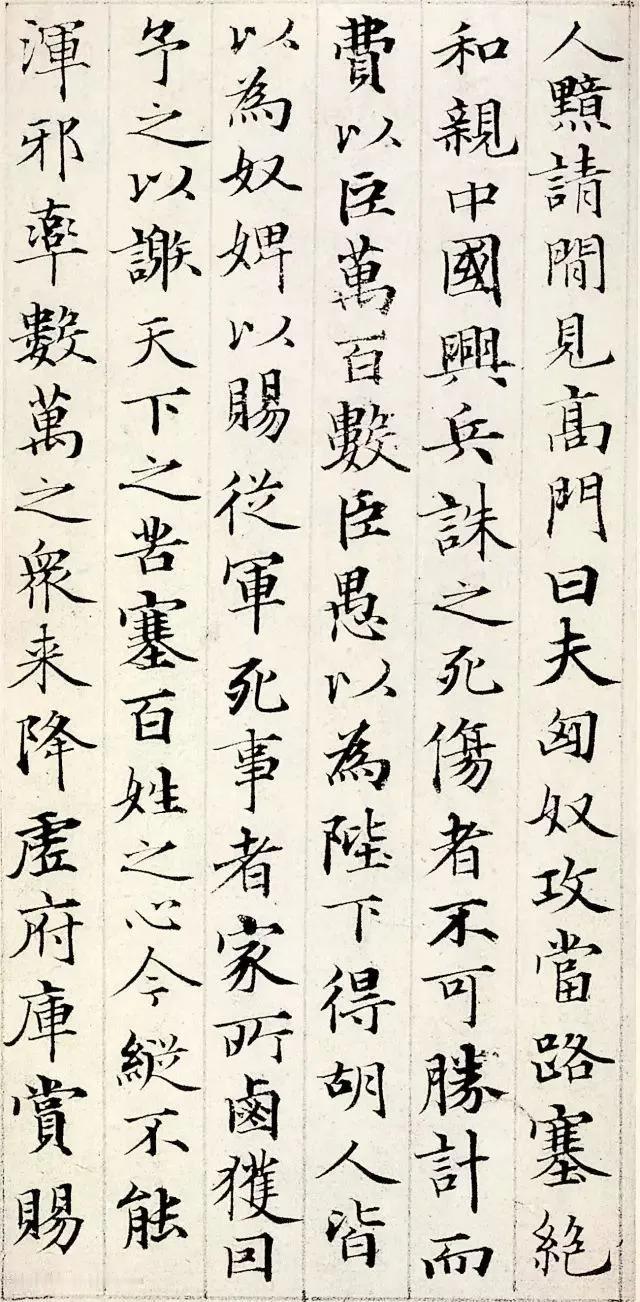 人黯請閒見高門曰夫匈奴攻當路塞絶
和親中國興兵誅之死傷者不可勝計而
費以臣萬百數臣愚以為陛下得胡人皆
以為奴婢以賜從軍死事者家所鹵獲因
予之以謝天下之苦塞百姓之心今縱不能
渾邪率數萬之衆来降虛府庫賞賜